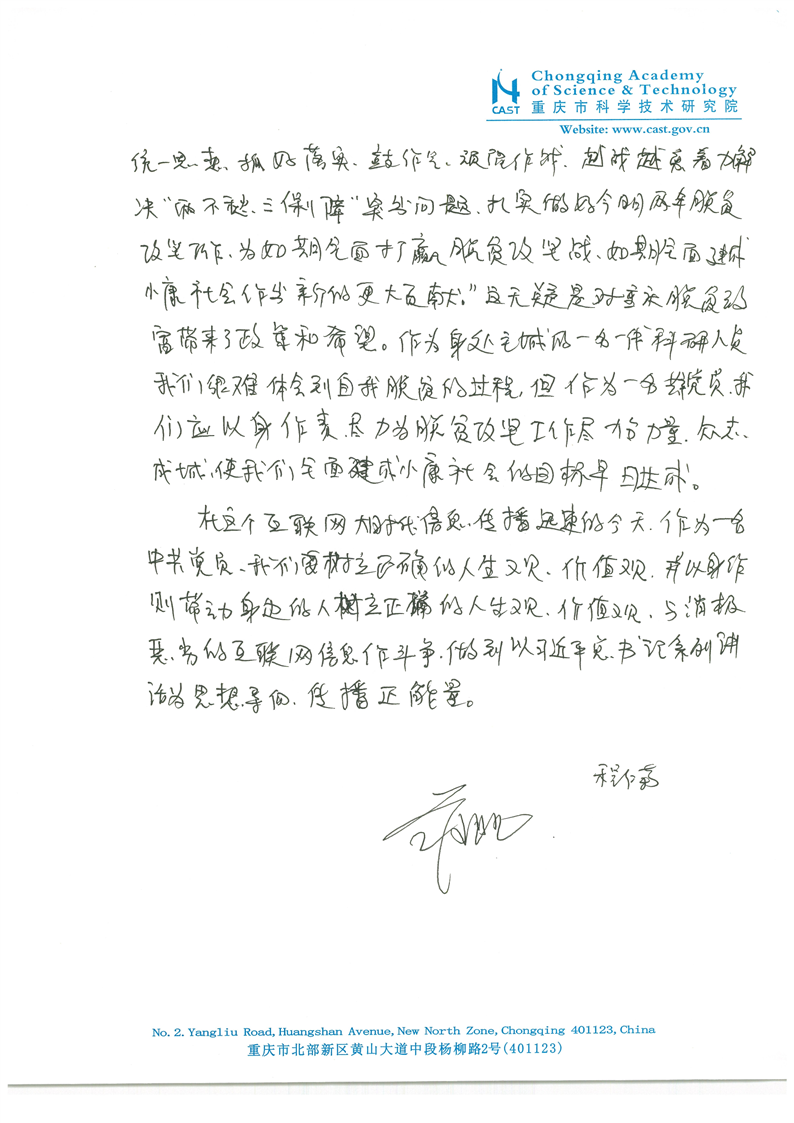 CAST
Chongqing Academy
of Science & Technology
重庆市科学技术研究院
Website: www.cast.gov.cn
统一思想、抓好落实、鼓作气、顽强作战、越战越勇着力解
决“两不愁、三保障”突出问题、扎实做好今明两年脱贫
攻坚工作、为如期全面打赢脱贫攻坚战、如期全面建成
小康社会作出新的更大贡献。”且无疑是对重庆脱贫致
富带来了政策和希望。作为身处主城的一名一体科研人员
我们很难体会到自我脱贫的过程,但作为一名党员,我
们应以身作责,尽力为脱贫攻坚工作尽一份力量,众志
成城,使我们全面建成小康社会的目标早日达成。
在这个互联网大时代信息传播迅速的今天,作为一名
中共党员、我们要树立正确的人生观、价值观,并以身作
则带动身边的人树立正确的人生观、价值观,与消极
恶劣的互联网信息作斗争,做到以习近平总书记系列讲
话为思想导向、传播正能量。
No. 2. Yangliu Road, Huangshan Avenue, New North Zone, Chongqing 401123, China
重庆市北部新区黄山大道中段杨柳路2号(401123)